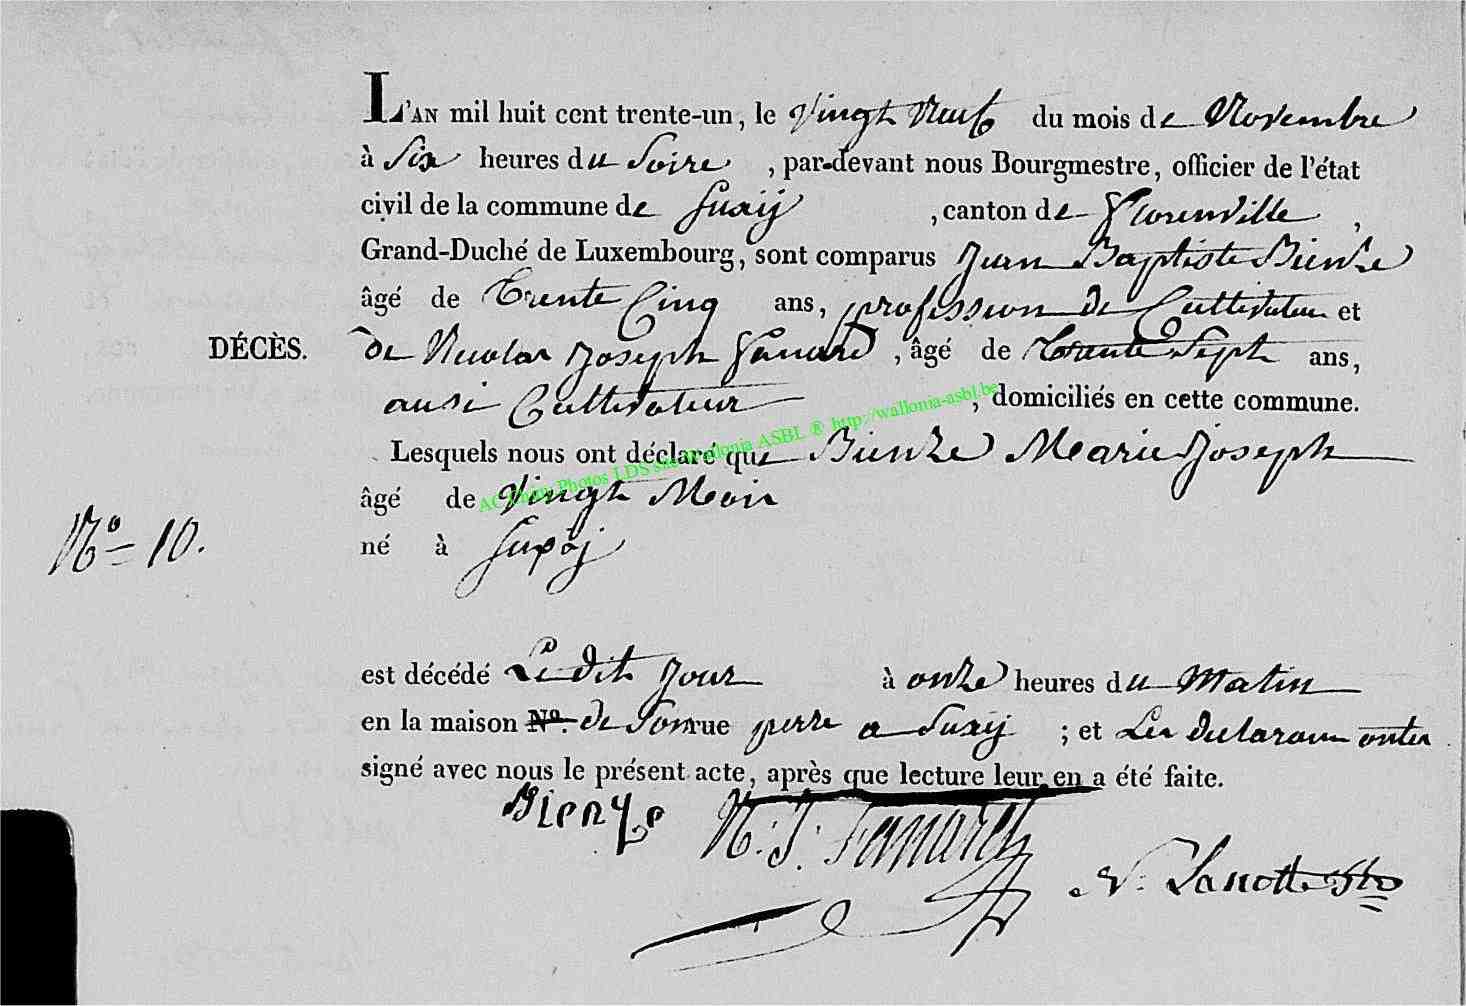 L'AN mil huit cent trente-un, le Vingt Neuf du mois de Novembre
à Six heures du Soire, par-devant nous Bourgmestre, officier de l'état
civil de la commune de Suxÿ, canton de Florenville,
Grand-Duché de Luxembourg, sont comparus Jean Baptiste Bienze
âgé de Trente Cinq ans, profession de Cultivateur et
DÉCÈS. de Nicolas Joseph Fanard, âgé de Trante Sept ans,
ausi Cultivateur, domiciliés en cette commune.
Lesquels nous ont déclaré que Bienze Marie Joseph
âgé de Vingt Mois
AC Photos LDS sur Wallonia ASBL ® http://wallonia-asbl.be
No 10. né à Suxÿ
est décédé Le dit Jour à onze heures du Matin
en la maison No. de Son rue perre a Suxÿ ; et Les Declarans ont
signé avec nous le présent acte, après que lecture leur en a été faite.
Bienze N: J: Fanard
N: Lanotte